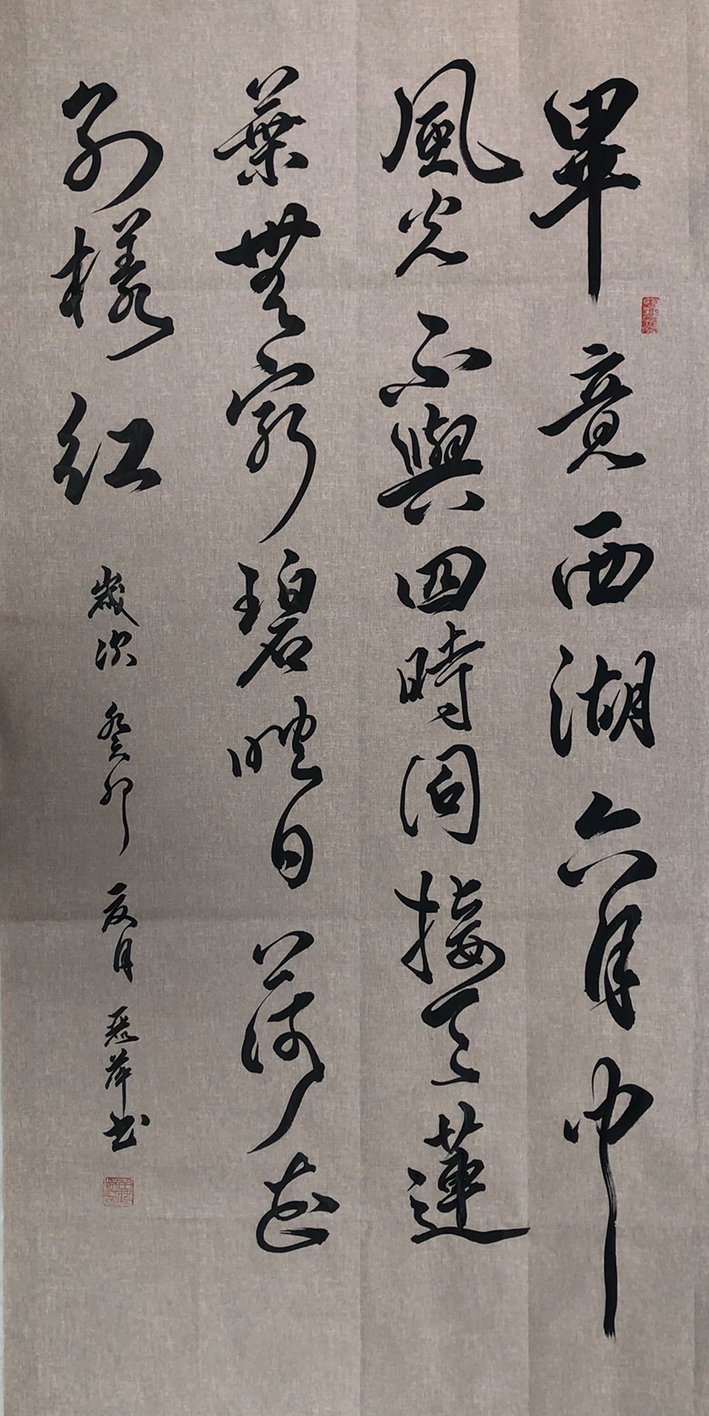 畢竟西湖六月中
風光不與四時同接天蓮
葉無窮碧映日荷花
別樣紅
歲次癸卯夏月萍書